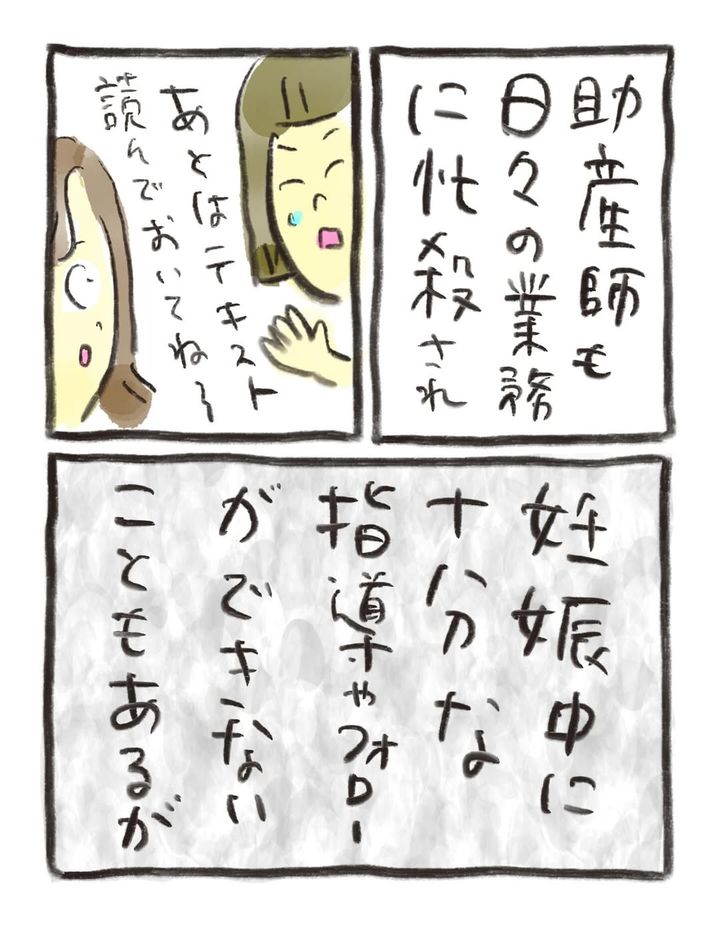 助産師も
日々の業務
に忙殺され
あとはテキスト
読んでおいてね〜
妊娠中に
十分な
指導やフォロー
ができない
こともあるが